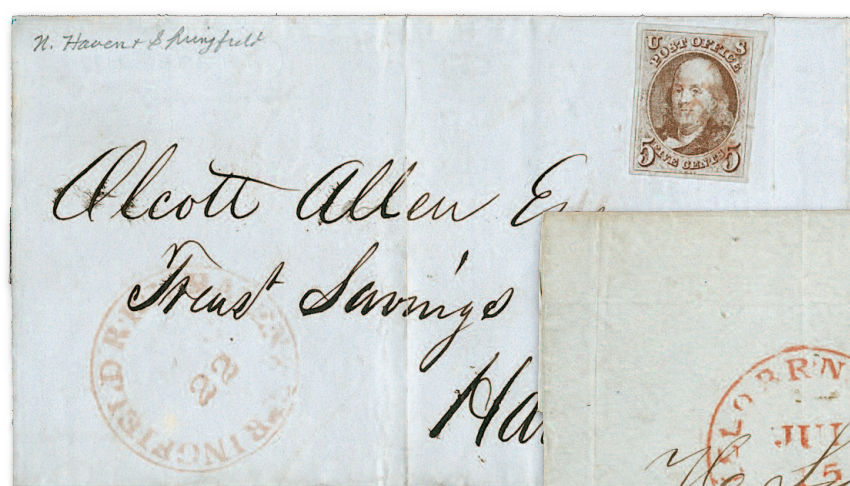 N. Haven & Springfield
U S
POST OFFICE
5 FIVE CENTS 5
Alcott Allen
Treast Savings
Ha
SPRINGFIELD R.R.
22
JUL
15